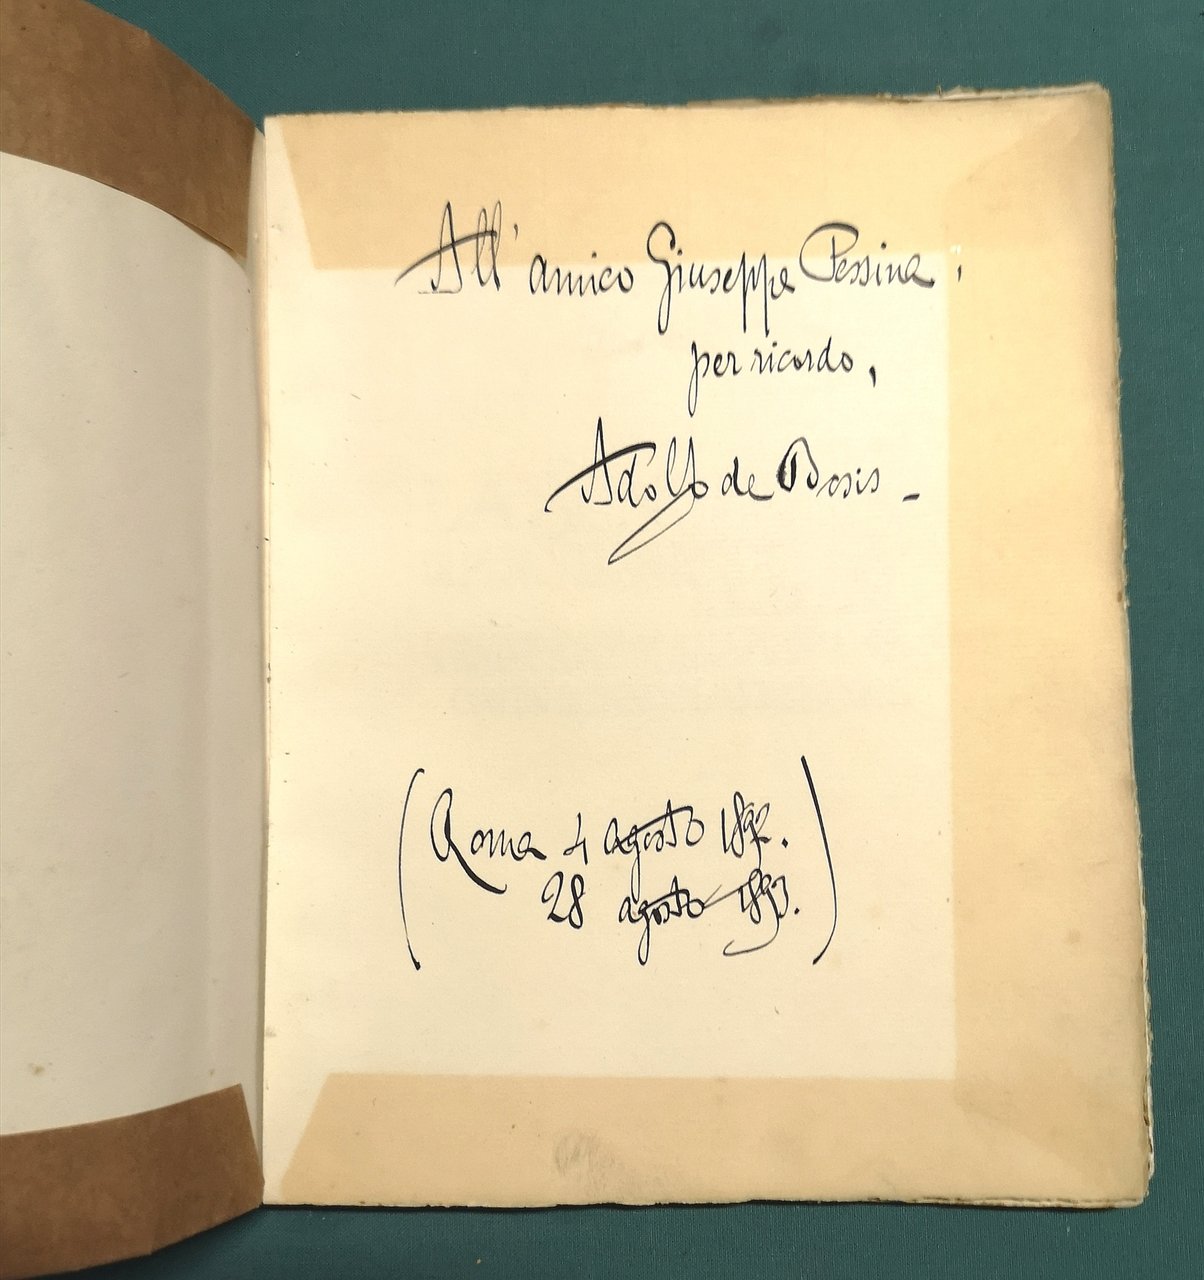 All' amico Giuseppe Pessina,
per ricordo,
Adolfo de Bosis -
(Roma 4 agosto 1892.
28 agosto 1893.)